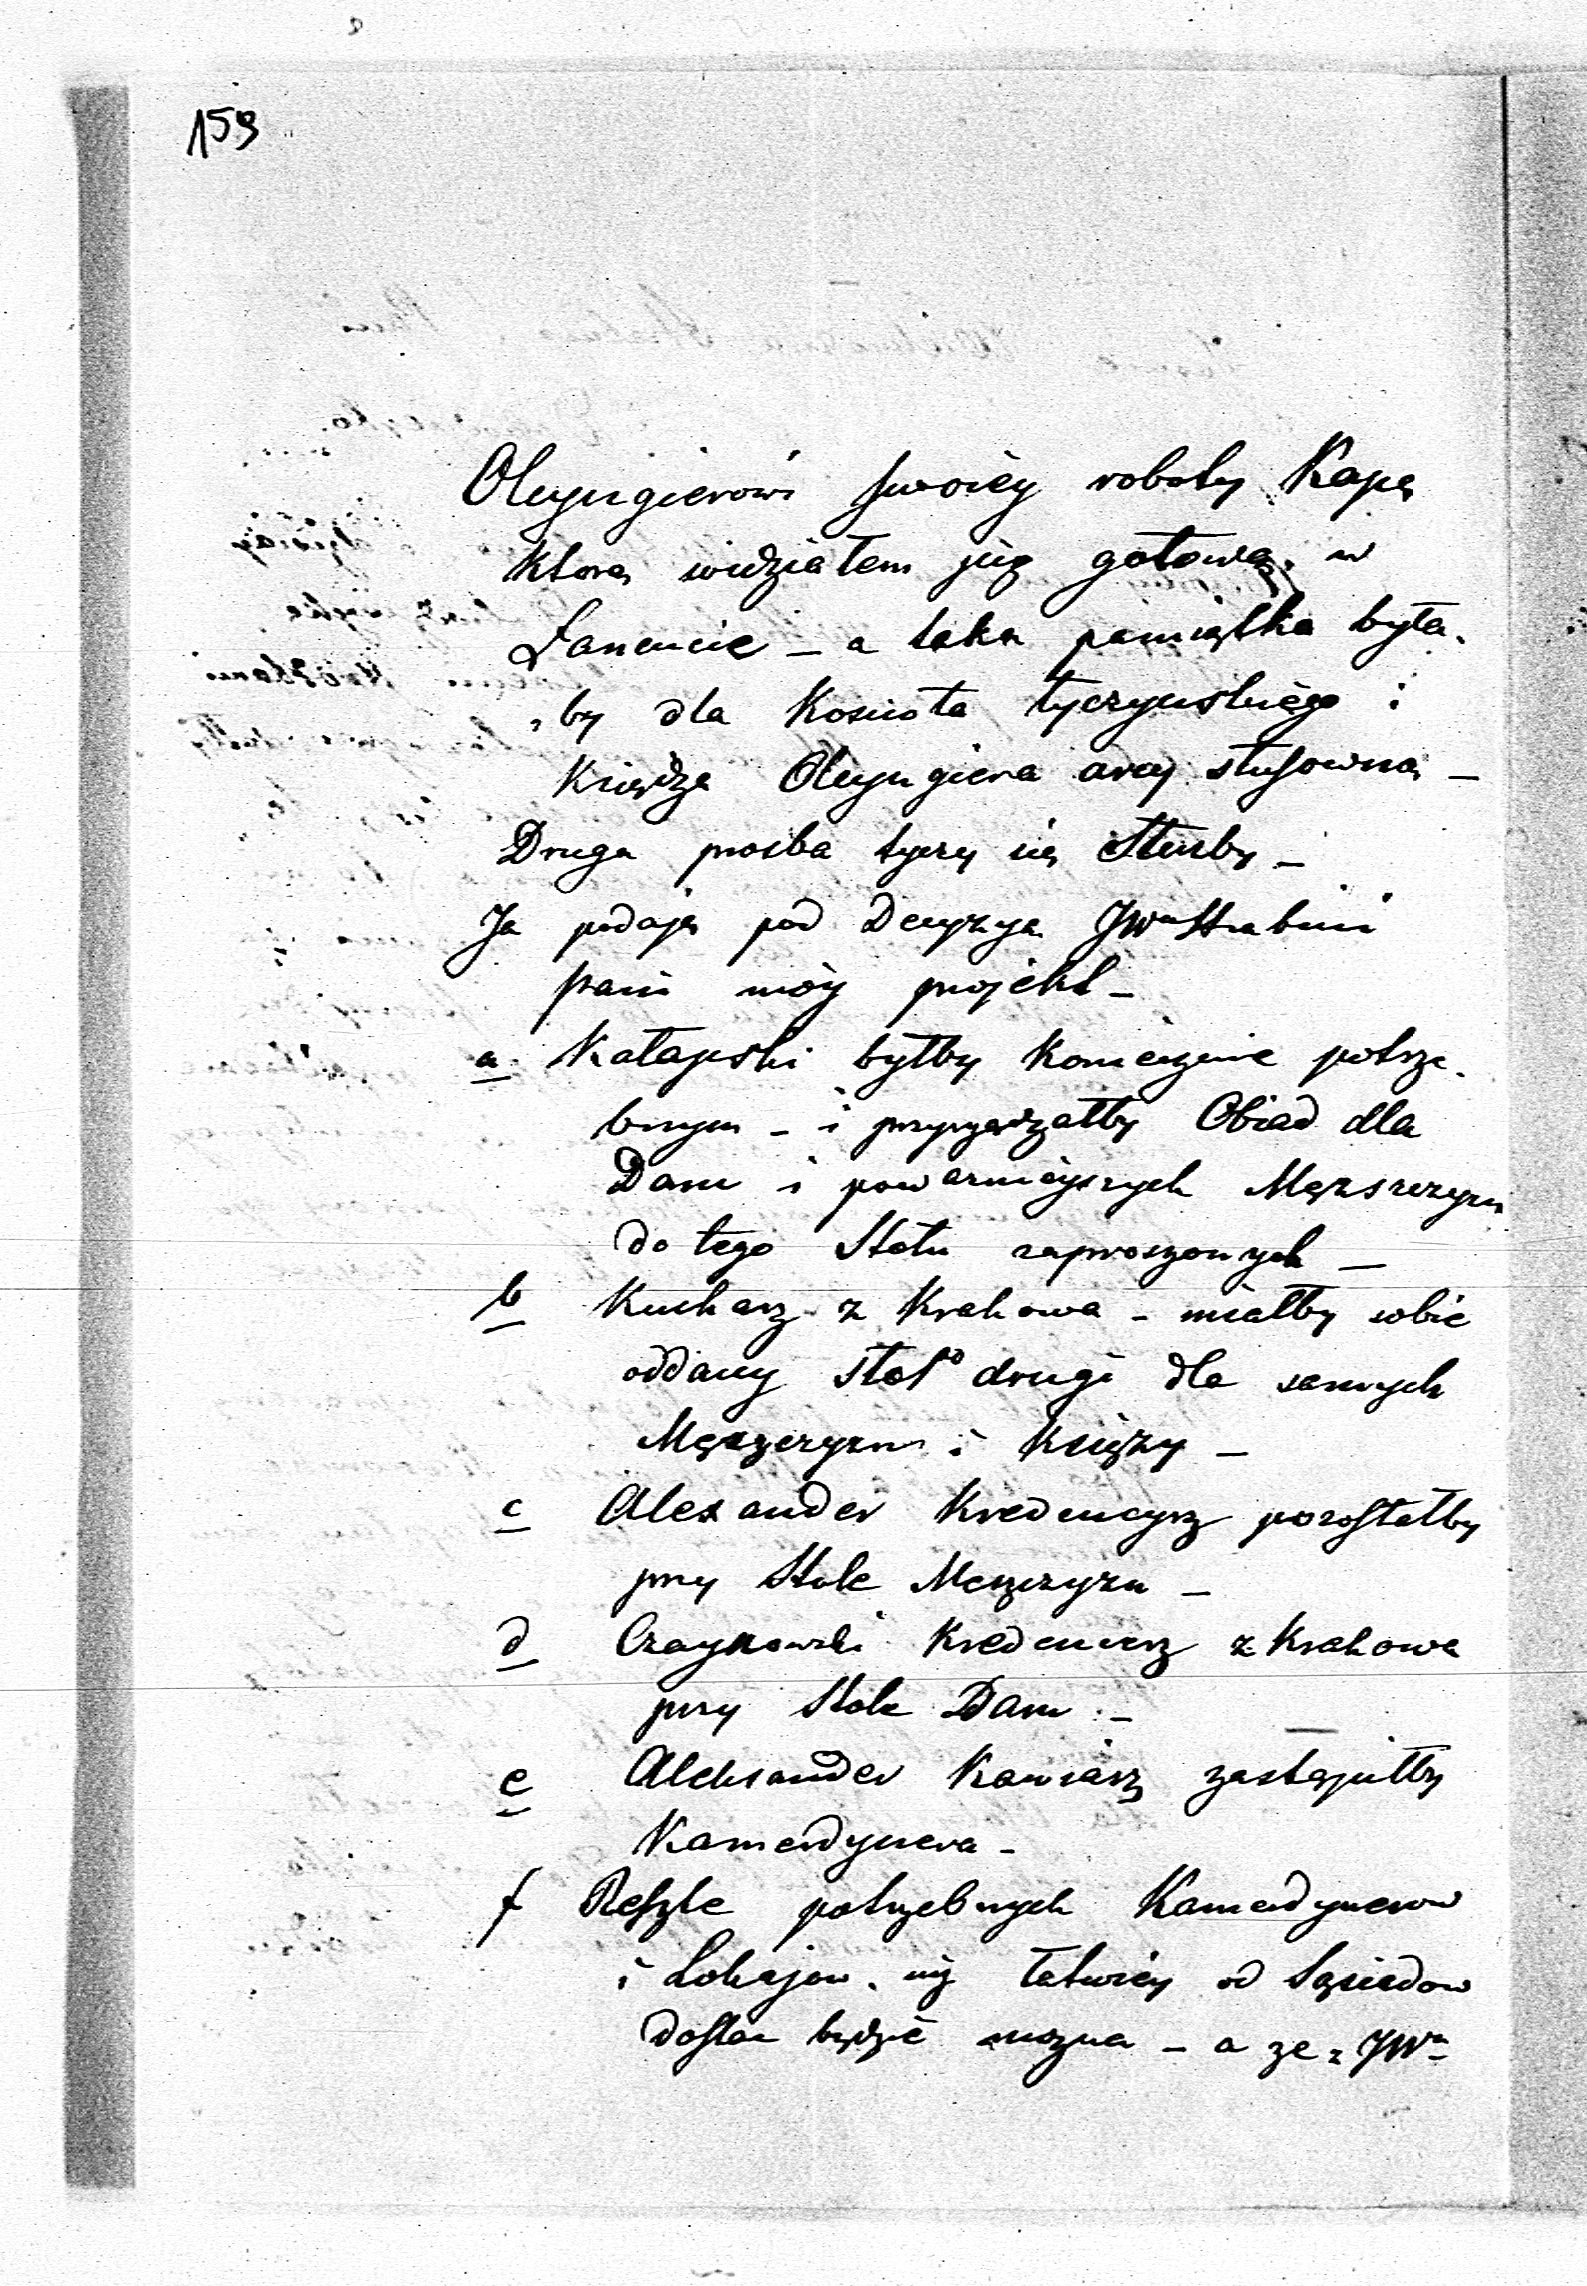 159
Oleyngierowi swoiey roboty Kapę
ktorą widziałem już gotową w
Łancucie – a taka pamiątka była-
-by dla Kosciota tyczynskiego i
Księdza Oleyngiera arcy stusowną –
Druga prosba tyczy się Służby –
Ja podaję pod Decyzyą JWa Hrabini
pani móy projekt –
a Kałapski byłby koniecznie potrze-
bnym – i przyrządzałby Obiad dla
Dam i poważnieyszych Męzszczyzn
do tego Stołu zaproszonych –
b Kucharz z Krakowa – miałby sobie
oddany stoł drugi dla samych
Męzczyzn i Księży –
c Alexander Kredencyrz pozostałby
przy Stole Męzczyzn –
d Czaykowski Kredencerz z Krakowa
przy Stole Dam –
e Aleksander Kawiarz zastąpiłby
Kamerdynera –
f Resztę potrzebnych Kamerdynerow
i Lokajow już łatwiey od Sąsiadow
dostać będzie można – a że z JWa